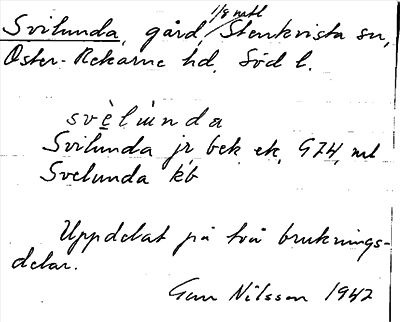 1/8 mtl
Svilunda, gård, Stenkvista sn,
Öster-Rekarne hd, Söd l.
svèlùnda
Svilunda jr, bek, ek, GZH, ml
Svelunda kb
Uppdelat på två bruknings-
delar.
Gun Nilsson 1942